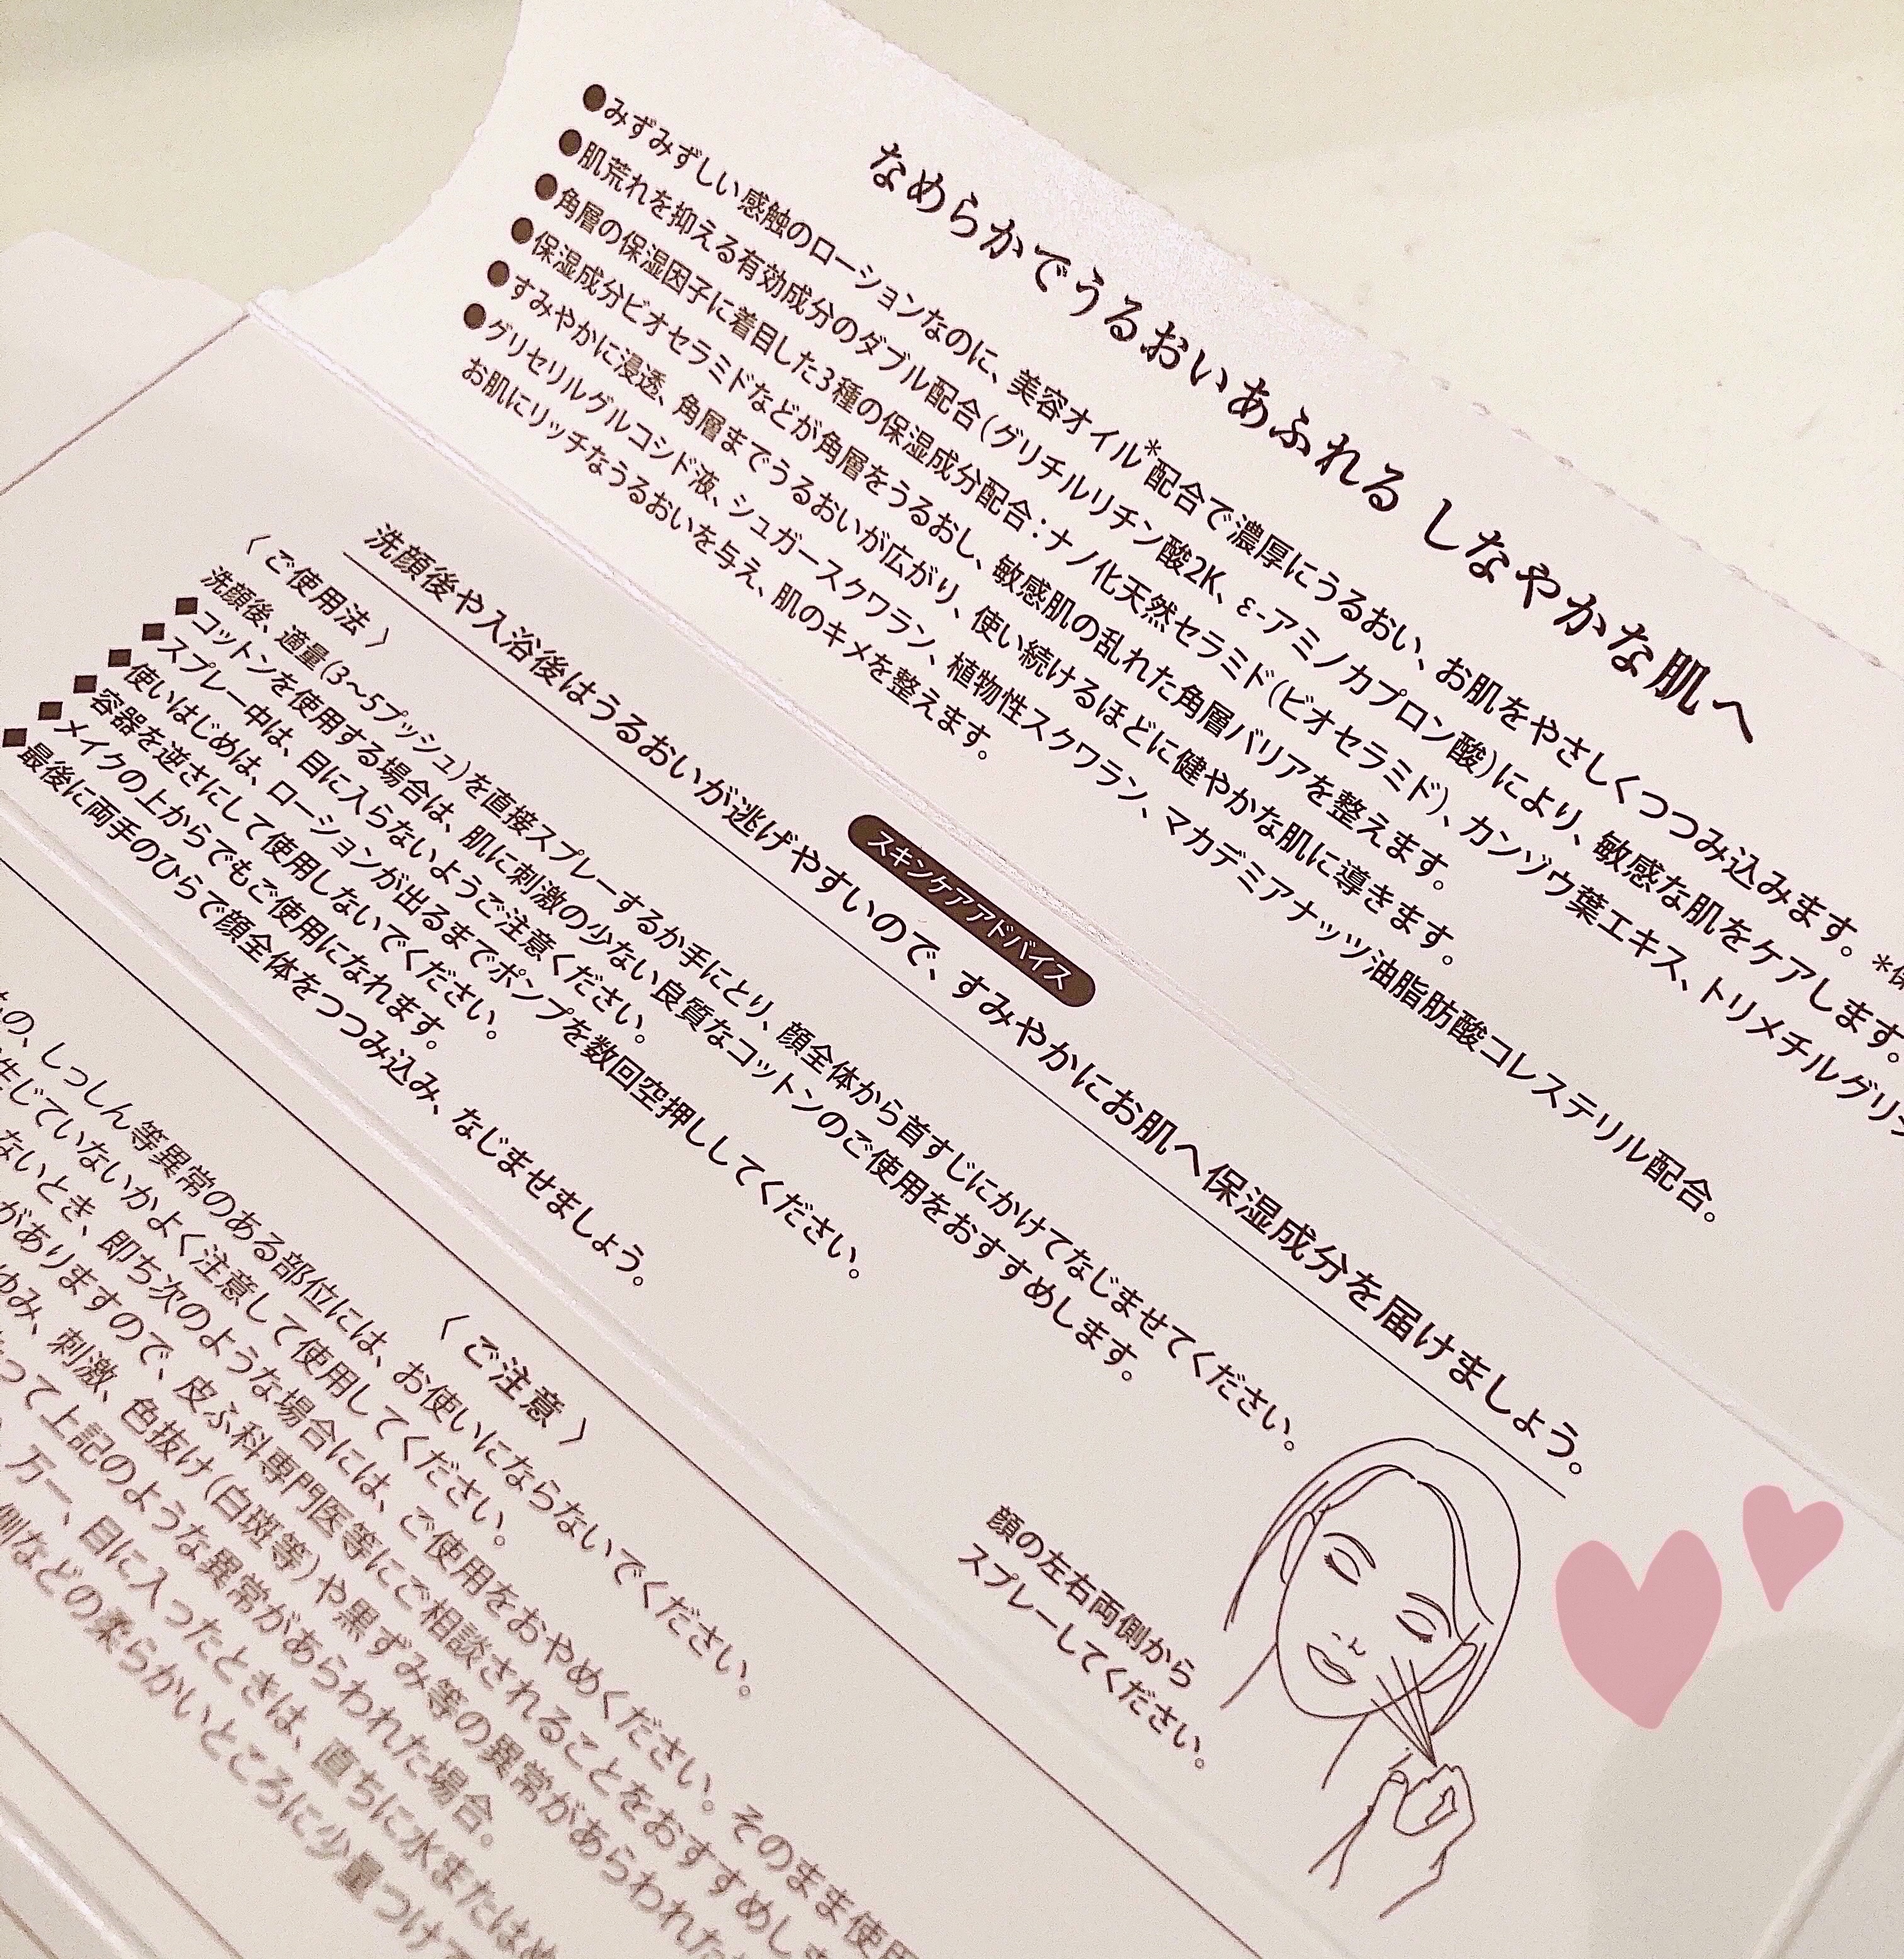 なめらかでうるおいあふれる しなやかな肌へ
●みずみずしい感触のローションなのに、美容オイル*配合で濃厚にうるおい、お肌をやさしくつつみ込みます。*保
●肌荒れを抑える有効成分のダブル配合(グリチルリチン酸2K、ε-アミノカプロン酸)により、敏感な肌をケアします。
●角層の保湿因子に着目した3種の保湿成分配合:ナノ化天然セラミド(ビオセラミド)、カンゾウ葉エキス、トリメチルグリシ
●保湿成分ビオセラミドなどが角層をうるおし、敏感肌の乱れた角層バリアを整えます。
●すみやかに浸透、角層までうるおいが広がり、使い続けるほどに健やかな肌に導きます。
●グリセリルグルコシド液、シュガースクワラン、植物性スクワラン、マカデミアナッツ油脂肪酸コレステリル配合。
お肌にリッチなうるおいを与え、肌のキメを整えます。
スキンケアアドバイス
洗顔後や入浴後はうるおいが逃げやすいので、すみやかにお肌へ保湿成分を届けましょう。
〈ご使用法〉
洗顔後、適量(3〜5プッシュ)を直接スプレーするか手にとり、顔全体から首すじにかけてなじませてください。
■コットンを使用する場合は、肌に刺激の少ない良質なコットンのご使用をおすすめします。
■スプレー中は、目に入らないようご注意ください。
■使いはじめは、ローションが出るまでポンプを数回空押ししてください。
■容器を逆さにして使用しないでください。
■メイクの上からでもご使用になれます。
■最後に両手のひらで顔全体をつつみ込み、なじませましょう。
顔の左右両側から
スプレーしてください。
〈ご注意〉
の、しっしん等異常のある部位には、お使いにならないでください。
生じていないかよく注意して使用してください。
ないとき、即ち次のような場合には、ご使用をおやめください。そのまま使用
がありますので、皮ふ科専門医等にご相談されることをおすすめしま
ゆみ、刺激、色抜け(白斑等)や黒ずみ等の異常があらわれた
って上記のような異常があらわれた場合。
万一、目に入ったときは、直ちに水またはぬ
側などの柔らかいところに少量つけて